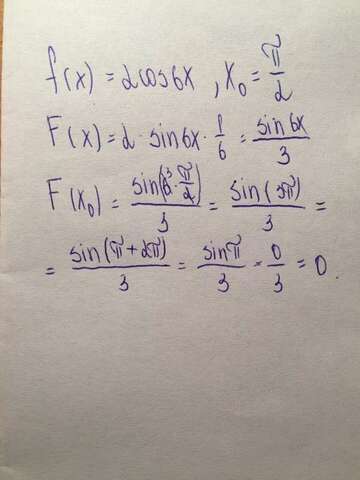 f(x) = 2cos6x , x₀ = π/2
F(x) = 2 · sin6x · 1/6 = sin6x/3
F(x₀) = sin(6³ · π/2)/3 = sin(3π)/3 =
= sin(π + 2π)/3 = sinπ/3 = 0/3 = 0